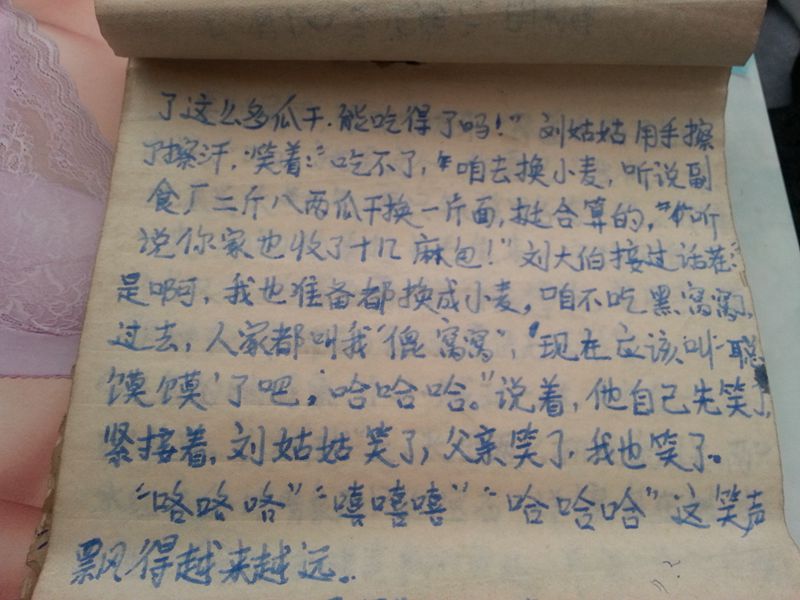 了这么多瓜干.能吃得了吗!"刘姑姑用手擦
了擦汗,笑着:"吃不了,咱去换小麦,听说副
食厂二斤八两瓜干换一斤面,挺合算的,""听
说你家也收了十几麻包!"刘大伯接过话茬:
是啊,我也准备都换成小麦,咱不吃黑窝窝,
过去,人家都叫我'傻窝窝',现在应该叫'聪
馍馍'了吧,哈哈哈。"说着,他自己先笑了,
紧接着,刘姑姑笑了,父亲笑了,我也笑了。
"咯咯咯""嘻嘻嘻""哈哈哈"这笑声
飘得越来越远..